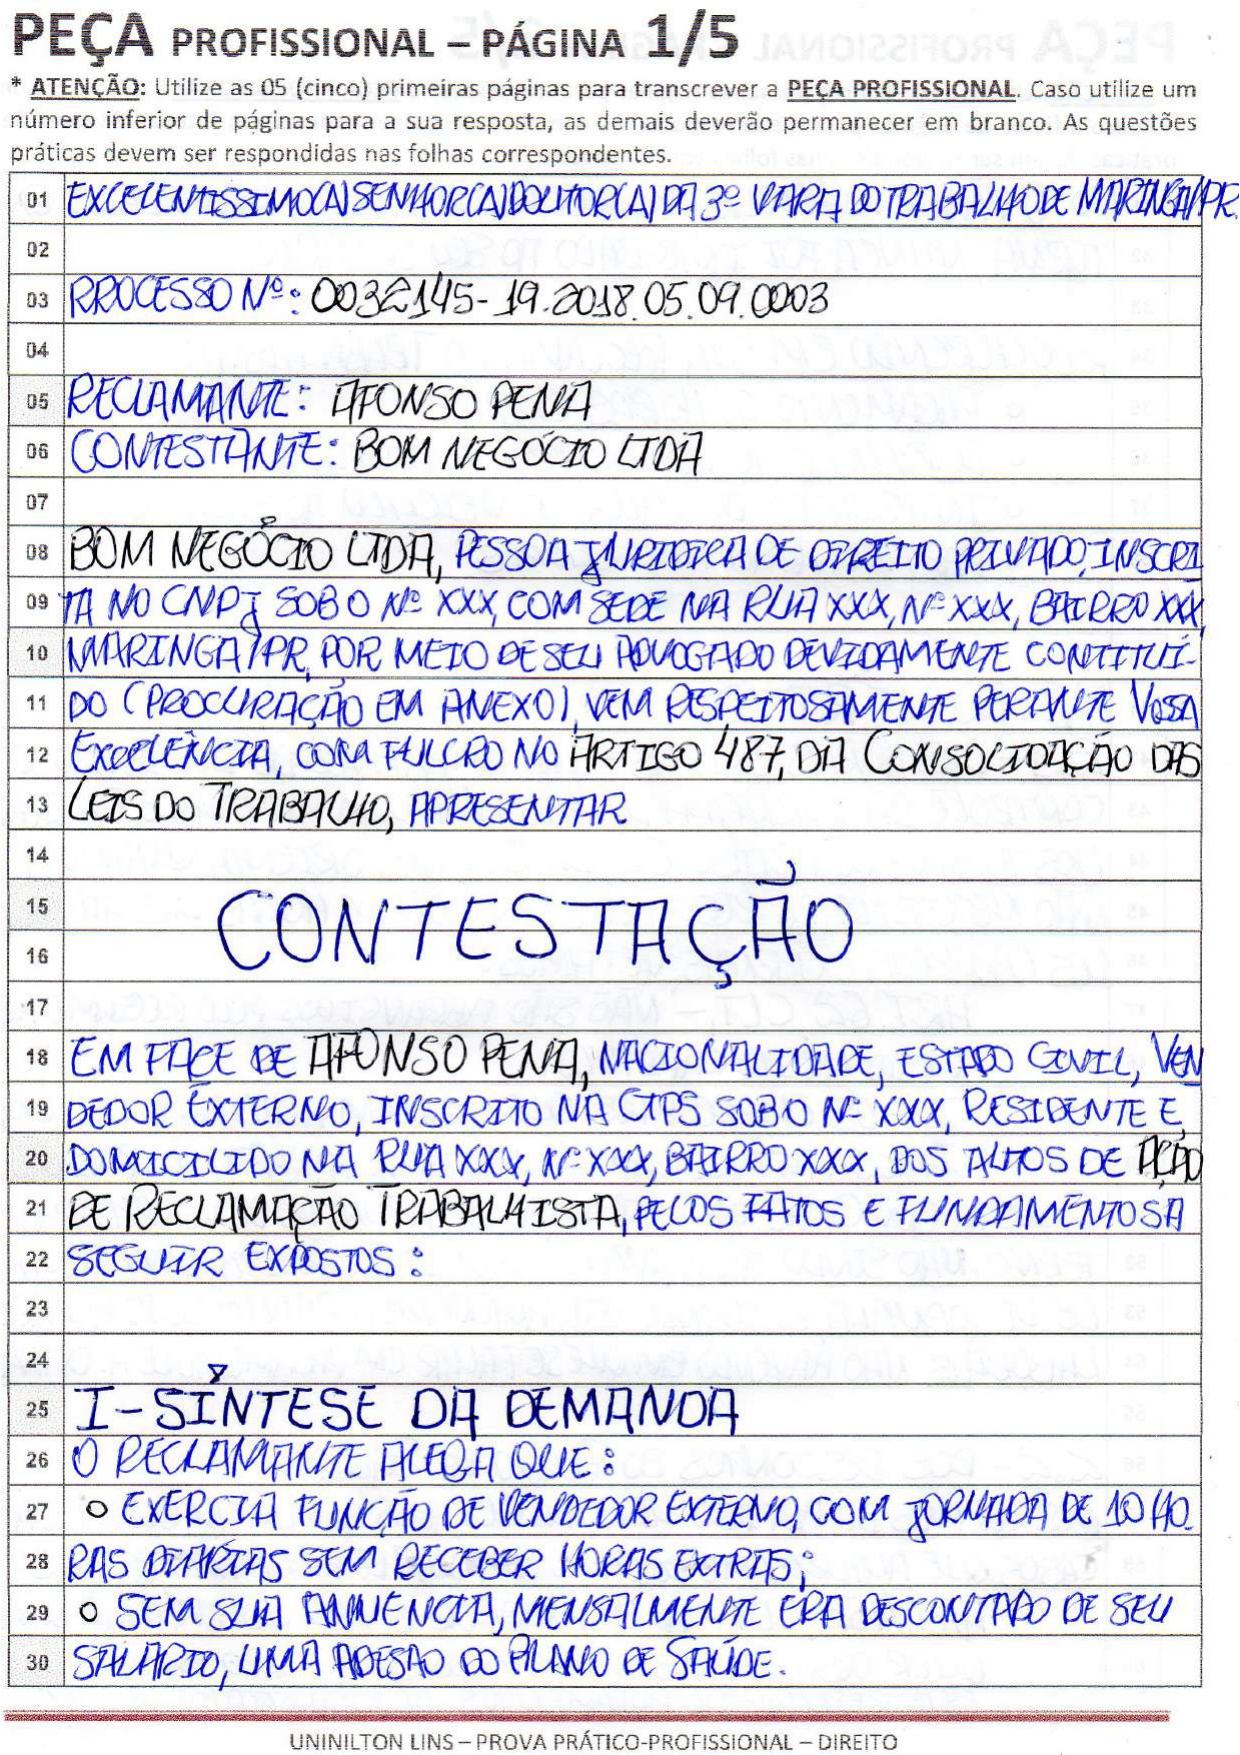 PEÇA PROFISSIONAL – PÁGINA 1/5
* ATENÇÃO: Utilize as 05 (cinco) primeiras páginas para transcrever a PEÇA PROFISSIONAL. Caso utilize um
número inferior de páginas para a sua resposta, as demais deverão permanecer em branco. As questões
práticas devem ser respondidas nas folhas correspondentes.
01 EXCELENTISSIMO(A) SENHOR(A) DOUTOR(A) DA 3ª VARA DO TRABALHO DE MARINGA/PR.
02
03 PROCESSO Nº: 0032145-19.2018.05.09.0003
04
05 RECLAMANTE: AFONSO PENA
06 CONTESTANTE: BOM NEGÓCIO LTDA
07
08 BOM NEGÓCIO LTDA, PESSOA JURIDICA DE DIREITO PRIVADO, INSCRI
09 TA NO CNPJ SOB O Nº XXX, COM SEDE NA RUA XXX, Nº XXX, BAIRRO XXX,
10 MARINGA/PR, POR MEIO DE SEU ADVOGADO DEVIDAMENTE CONTITUÍ-
11 DO (PROCURAÇÃO EM ANEXO), VEM RESPEITOSAMENTE PERANTE VOSSA
12 EXCELÊNCIA, COM FULCRO NO ARTIGO 487, DA CONSOLIDAÇÃO DAS
13 LEIS DO TRABALHO, APRESENTAR
14
15 CONTESTAÇÃO
16
17
18 EM FACE DE AFONSO PENA, NACIONALIDADE, ESTADO CIVIL, VEN
19 DEDOR EXTERNO, INSCRITO NA CTPS SOB O Nº XXX, RESIDENTE E
20 DOMICILIDO NA RUA XXX, Nº XXX, BAIRRO XXX, DOS AUTOS DE AÇÃO
21 DE RECLAMAÇÃO TRABALHISTA, PELOS FATOS E FUNDAMENTOS A
22 SEGUIR EXPOSTOS:
23
24
25 I - SÍNTESE DA DEMANDA
26 O RECLAMANTE ALEGA QUE:
27 o EXERCIA FUNÇÃO DE VENDEDOR EXTERNO, COM JORNADA DE 10 HO.
28 RAS DIARIAS SEM RECEBER HORAS EXTRAS;
29 o SEM SUA ANUENCIA, MENSALMENTE ERA DESCONTADO DE SEU
30 SALÁRIO, UMA ADESÃO DO PLANO DE SAÚDE.
UNINILTON LINS – PROVA PRÁTICO-PROFISSIONAL – DIREITO